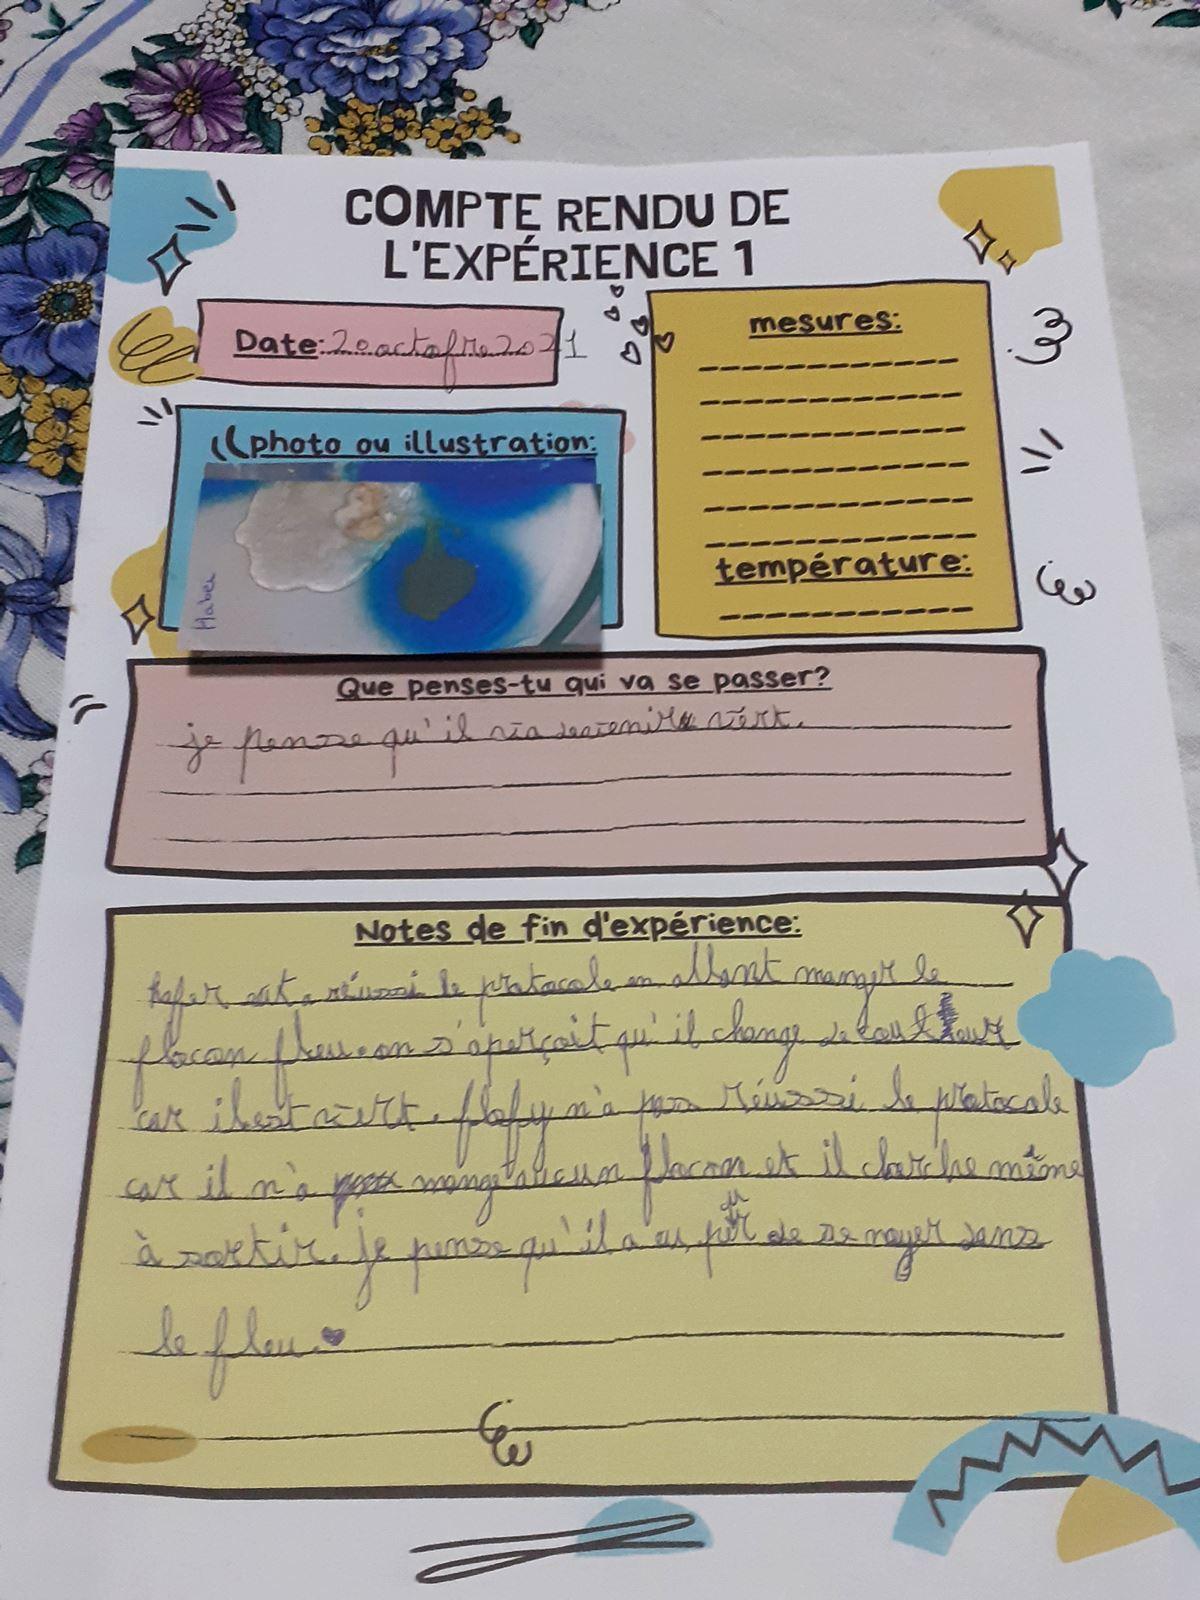 COMPTE RENDU DE
L'EXPÉRIENCE 1
Date: 20 octobre 2021
mesures:
photo ou illustration:
température:
Que penses-tu qui va se passer?
je pense qu'il va devenir vert.
Notes de fin d'expérience:
a réussi le protocole en allant manger le
flocon bleu. on s'aperçoit qu'il change de couleur
car il est vert. blofy n'a pas réussi le protocole
car il n'a mangé aucun flocon et il cherche même
à sortir. je pense qu'il a eu peur de se noyer dans
le bleu.